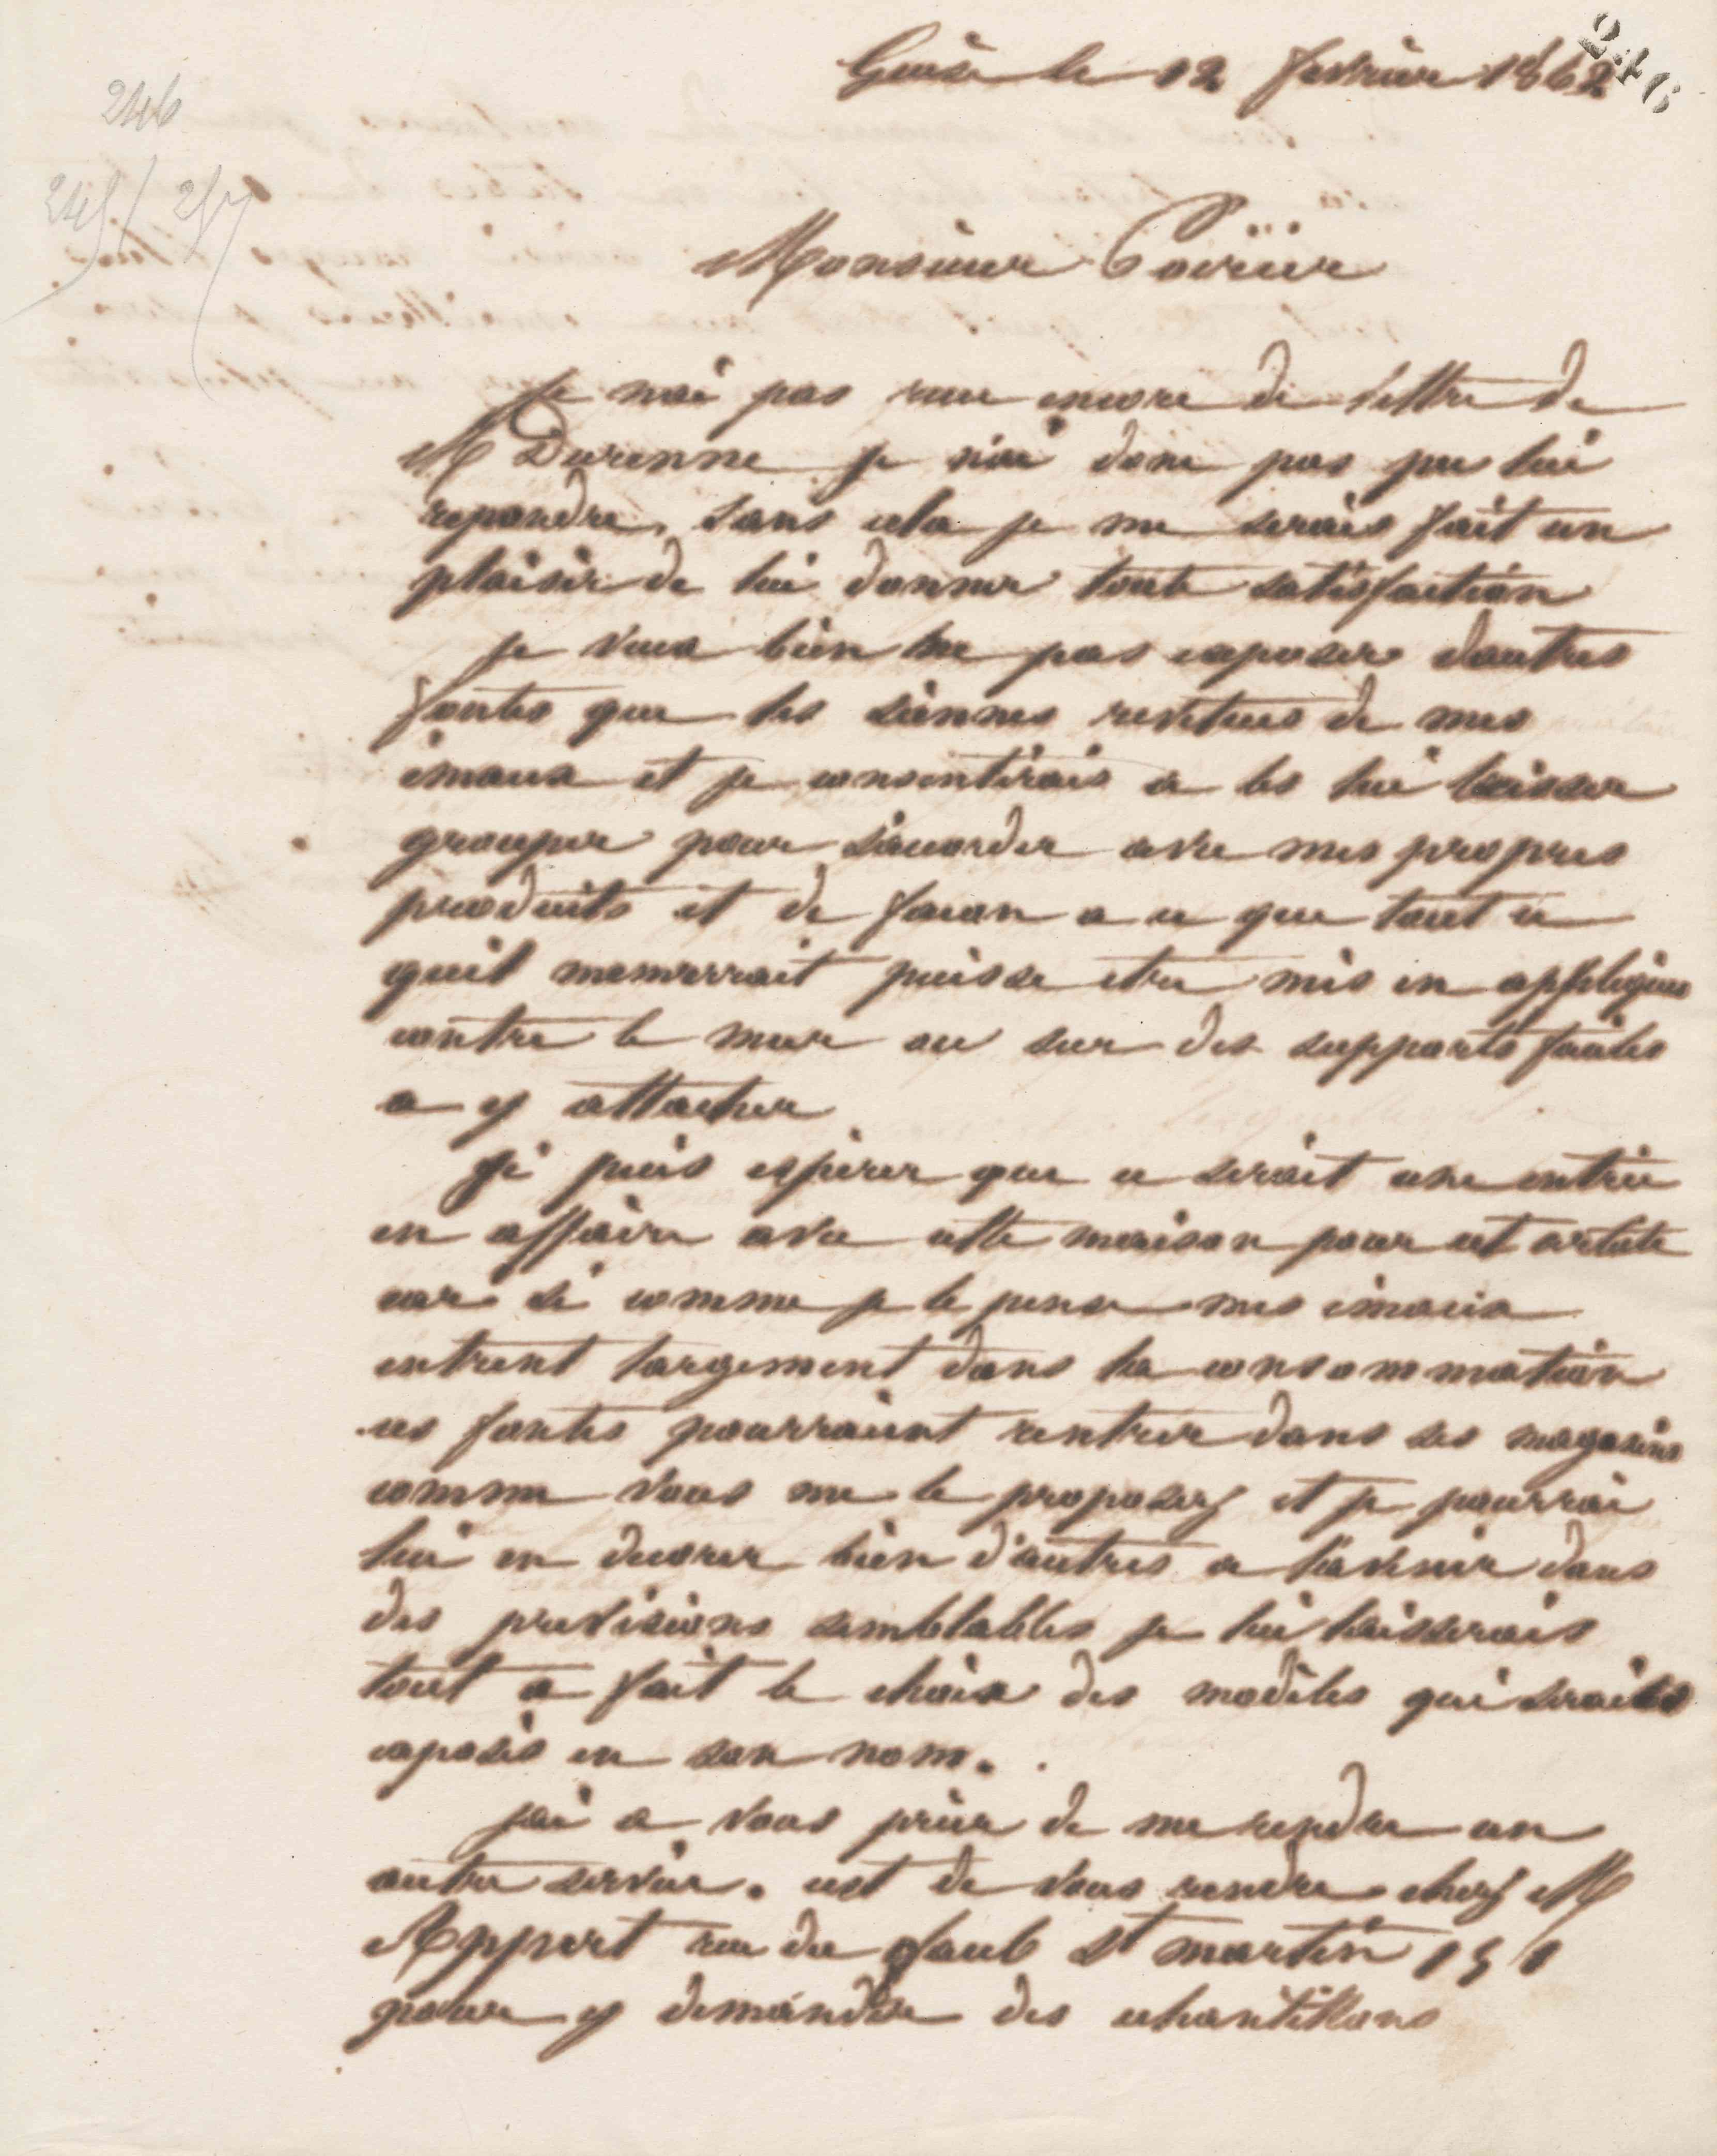 246
Guise le 12 fevrier 1862
246
245/257
Monsieur Poirier
Je nai pas recu encore de lettre de
M Durenne je nai donc pas pu lui
repondre, sans cela je me serais fait un
plaisir de lui donner toute satisfaction
je veux bien ne pas exposer dautres
fontes que les siennes revetues de mes
émaux et je consentirais a les lui laisser
grouper pour saccorder avec mes propres
produits et de facon a ce que tout ce
quil menverrait puisse etre mis en applique
contre le mur ou sur des supports faciles
a y attacher
Je puis espérer que ce serait une entrée
en affaire avec cette maison pour cet article
car si comme je le pense mes émaux
entrent largement dans la consommation
ces fontes pourraient rentrer dans ses magasins
comme vous me le proposez et je pourrai
lui en decorer bien d'autres a lavenir dans
des previsions semblables je lui laisserais
tout a fait le choix des modèles qui seraient
exposés en son nom.
jai a vous prier de me rendre un
autre service. cest de vous rendre chez M
Appert rue du faub St martin 151
pour y demander des echantillons